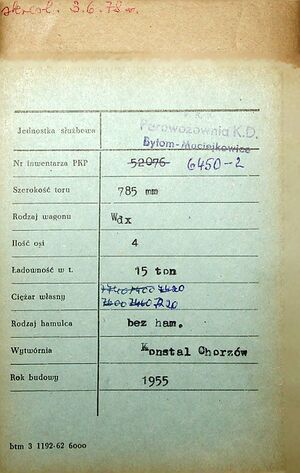 skreśl. 3.6.78 r.
P.K.P.
Parowozownia K.D.
Jednostka służbowa
Bytom-Maciejkowice
Nr inwentarza PKP 52076 6450-2
Szerokość toru 785 mm
Rodzaj wagonu Wdx
Ilość osi 4
Ładowność w t. 15 ton
Ciężar własny 7420
7220
Rodzaj hamulca bez ham.
Wytwórnia Konstal Chorzów
Rok budowy 1955
btm 3 1192-62 6000